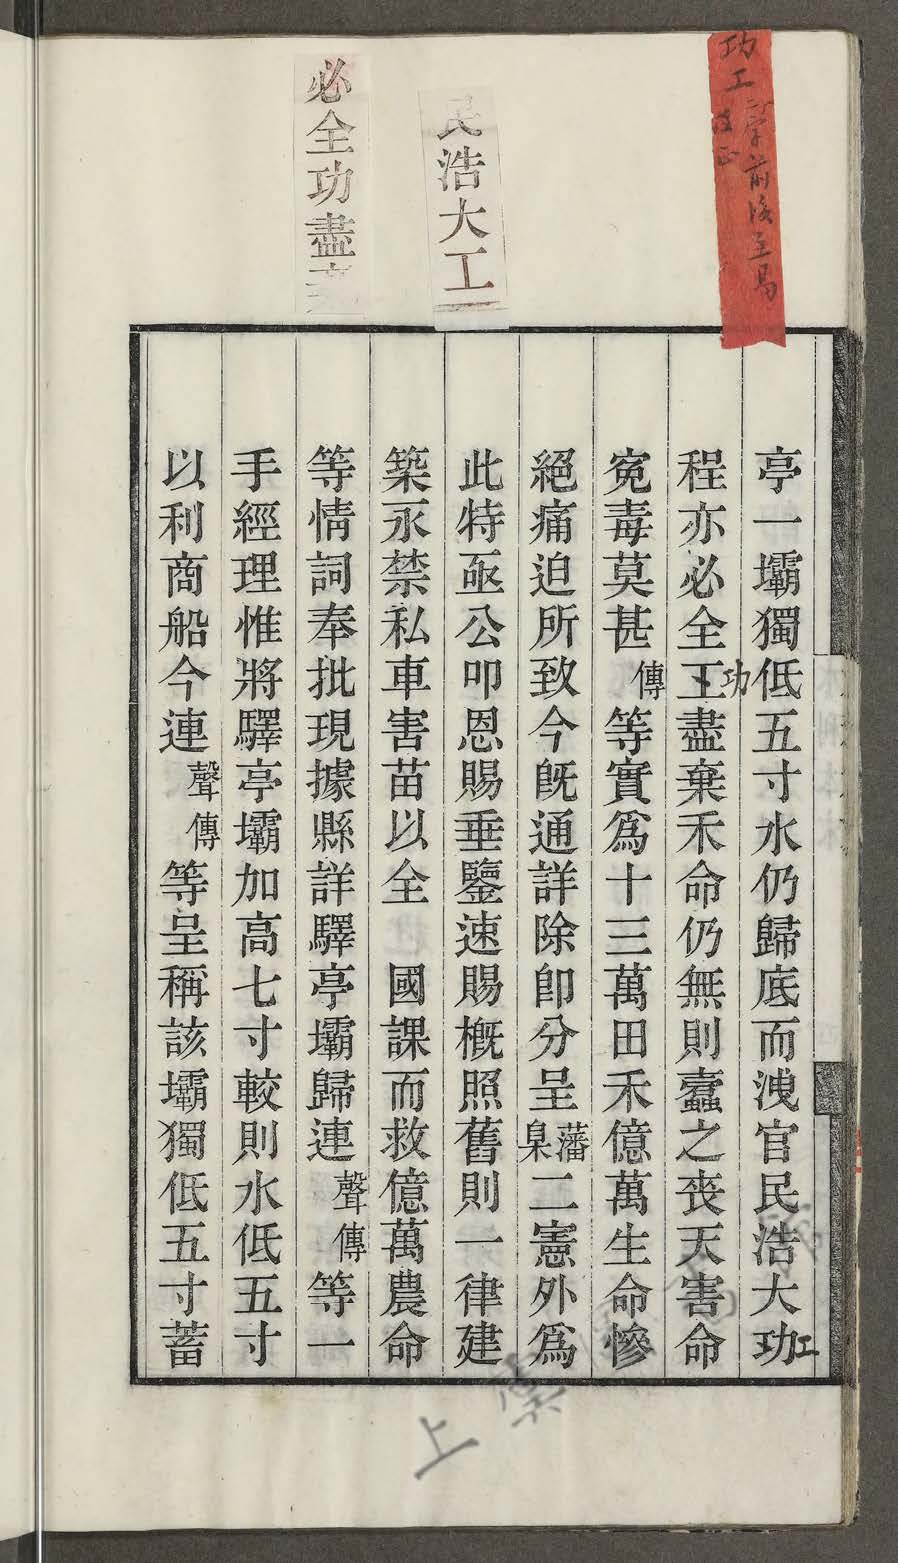 功工二字前後互易
改正
民浩大工
必全功盡
亭一壩獨低五寸水仍歸底而洩官民浩大功工
程亦必全工功盡棄禾命仍無則蠹之喪天害命
寃毒莫甚傳等實爲十三萬田禾億萬生命慘
絕痛迫所致今旣通詳除卽分呈藩臬二憲外爲
此特亟公叩恩賜垂鑒速賜槪照舊則一律建
築永禁私車害苗以全　國課而救億萬農命
等情詞奉批現據縣詳驛亭壩歸連聲傳等一
手經理惟將驛亭壩加高七寸較則水低五寸
以利商船今連聲傳等呈稱該壩獨低五寸蓄